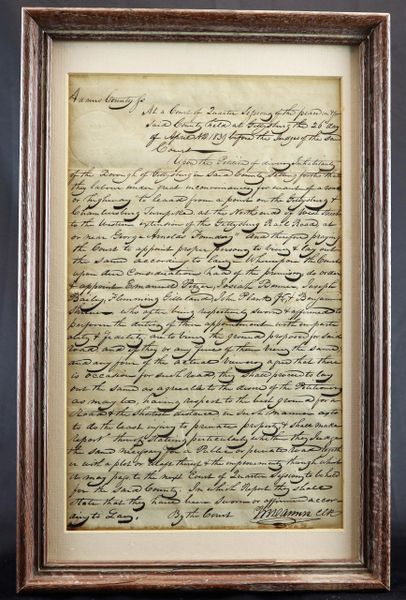 Adams County Ss
At a Court of Quarter Sessions of the peace in & for
Said County held at Gettysburg the 26th day
of April AD. 1839 before the Judges of the Said
Court
Upon the Petition of divers Inhabitants
of the Borough of Gettysburg in Said County Setting forth that
they labour under great inconvenience for want of a road
or highway to lead from a point on the Gettysburg &
Chambersburg Turnpike at the North end of West Street
to the Western extension of the Gettysburg Rail Road, at
or near George Arnolds Foundry And therefore praying
the Court to appoint proper persons to View & lay out
the Same according to law. Whereupon the Court
upon due Consideration had of the premises do order
& appoint Emanuel Pitzer, Joseph Bonner, Joseph
Baily, Flemming Gilliland, John Plank & Benjamin
who after being respectively Sworn & affirmed to
perform the duties of their appointment with imparti-
ality & fidelity are to View the ground proposed for Said
road and if they or any five of them View the Same,
and any four of the actual Viewers agree that there
is occasion for Such Road, they Shall proceed to lay
out the Same as agreeable to the desire of the Petitioners
as may be, having respect to the best ground for a
Road & the Shortest distance in Such manner as to
to do the least injury to private property & Shall make
report thereof Stating particularly whether they Judge
the Same necessary for a Public or private Road, togeth-
er with a plot or draft thereof & the improvements through which
it may pass to the next Court of Quarter Sessions to be held
for the Said County. In which Report they Shall
State that they have been Sworn or affirmed accor-
ding to Law. By the Court Clk